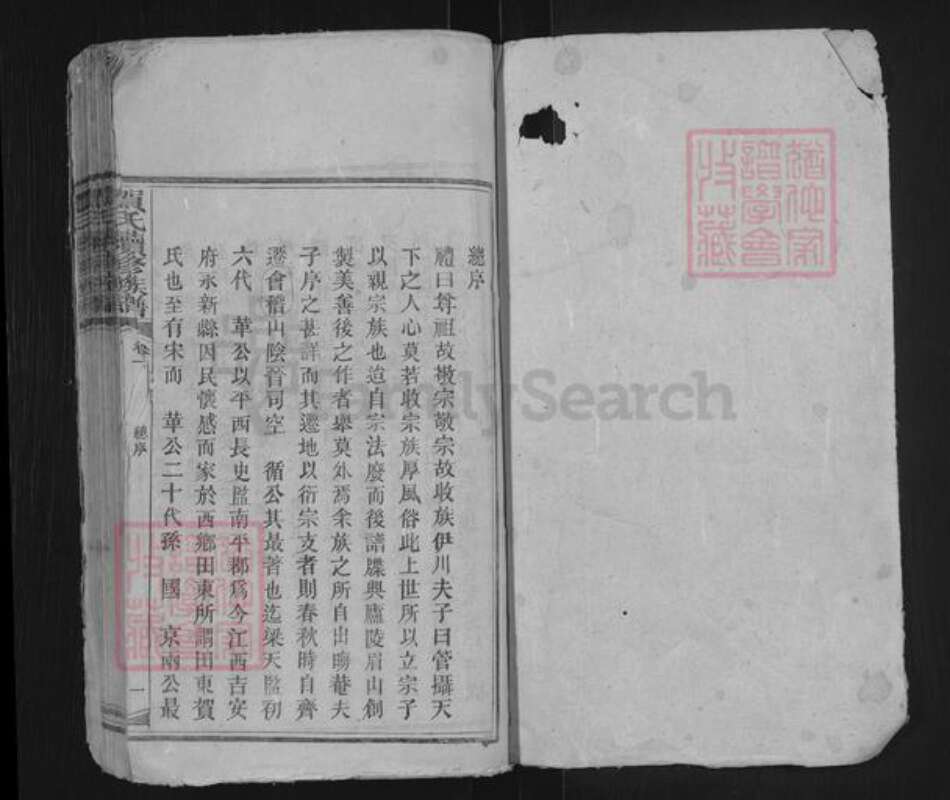 總序
禮曰尊祖故敬宗敬宗故收族伊川夫子曰管攝天
下之人心莫若收宗族厚風俗此上世所以立宗子
以親宗族也迨自宗法廢而後譜牒興廬陵眉山創
製美善後之作者舉莫外焉余族之所自出晦菴夫
子序之甚詳而其遷地以衍宗支者則春秋時自齊
遷會稽山陰晉司空 循公其最著也迄梁天監初
六代 華公以平西長史監南平郡爲今江西吉安
府永新縣因民懷感而家於西鄉田東所謂田東賀
氏也至有宋而 華公二十代孫 國 京南公最
賀氏續修族譜
卷一
總序
一
譜學會
收藏
FamilySearch